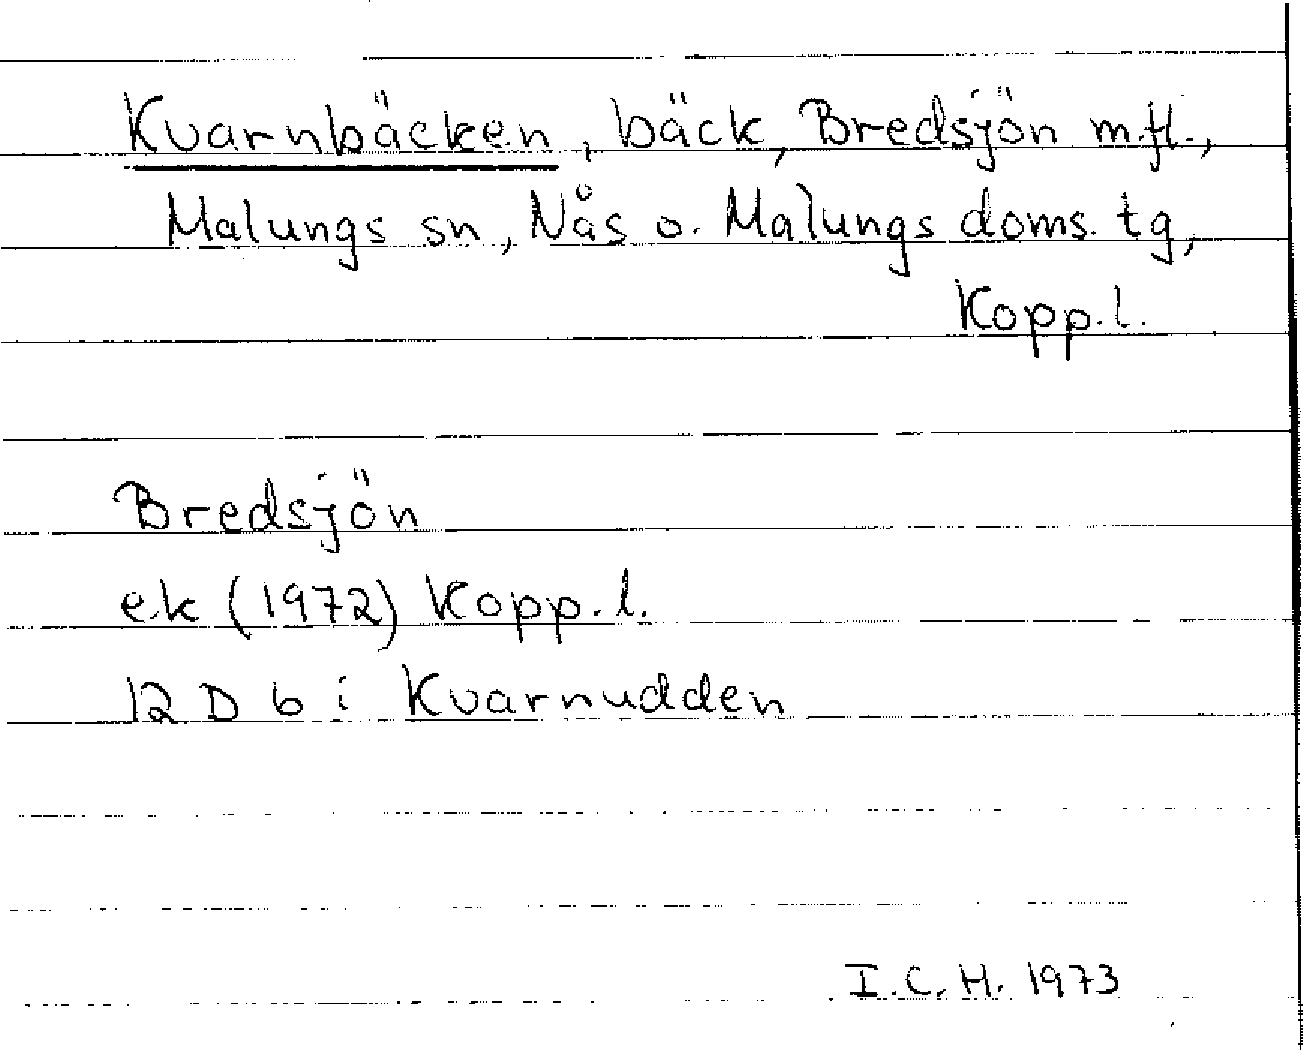 Kvarnbäcken, bäck, Bredsjön m.fl.,
Malungs sn, Nås o. Malungs doms. tg,
Kopp. l.
Bredsjön
ek (1972) Kopp. l.
12 D 6 i Kvarnudden
I. C. H. 1973